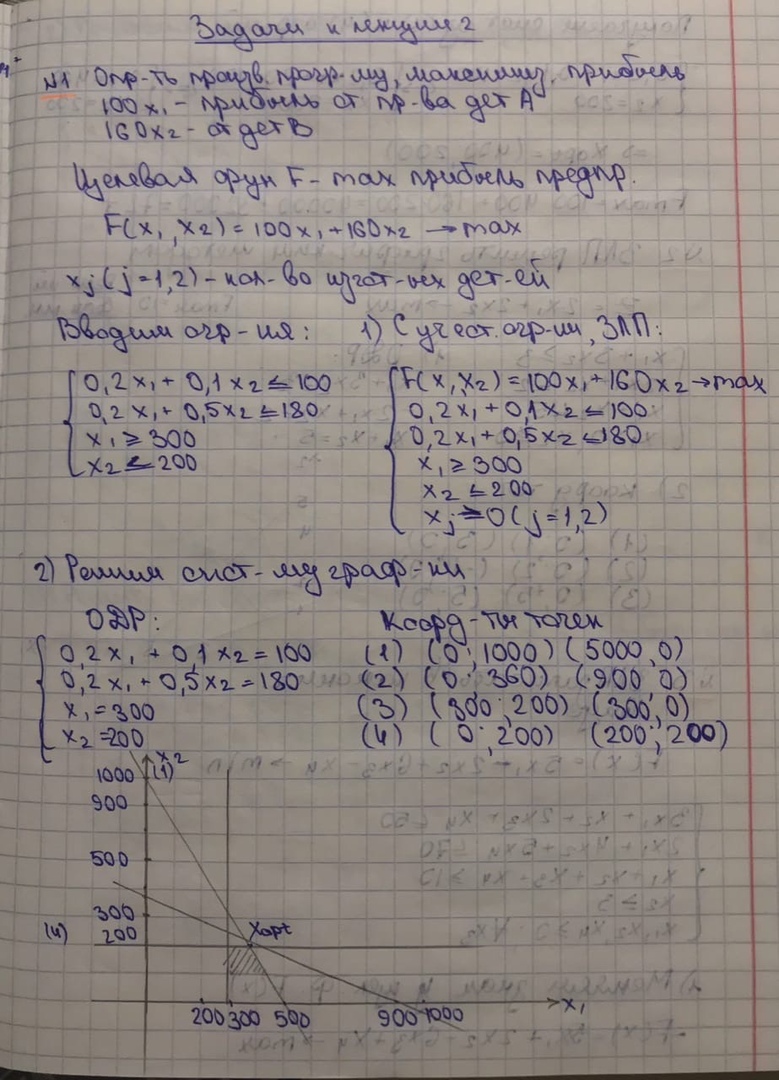 Задачи к лекции 2
№1 Опр-ть произв. прогр-му, максимиз. прибыль
100x₁ - прибыль от пр-ва дет A
160x₂ - от дет B
Целевая фун F - max прибыль предпр.
F(x₁, x₂) = 100x₁ + 160x₂ → max
xj (j=1,2) - кол-во изгот-ых дет-ей
Вводим огр-ия: 1) С учест. огр-ии, ЗЛП:
0,2x₁ + 0,1x₂ ≤ 100
0,2x₁ + 0,5x₂ ≤ 180
x₁ ≥ 300
x₂ ≤ 200
F(x₁, x₂) = 100x₁ + 160x₂ → max
0,2x₁ + 0,1x₂ ≤ 100
0,2x₁ + 0,5x₂ ≤ 180
x₁ ≥ 300
x₂ ≤ 200
xj ≥ 0 (j=1,2)
2) Решим сист-му граф-ки
ОДР: Коорд-ты точек
0,2x₁ + 0,1x₂ = 100 (1) (0; 1000) (5000; 0)
0,2x₁ + 0,5x₂ = 180 (2) (0; 360) (900; 0)
x₁ = 300 (3) (300; 200) (300; 0)
x₂ = 200 (4) (0; 200) (200; 200)
x₂
1000 (1)
900
500
300
(4) 200 Xopt
200 300 500 900 1000 x₁